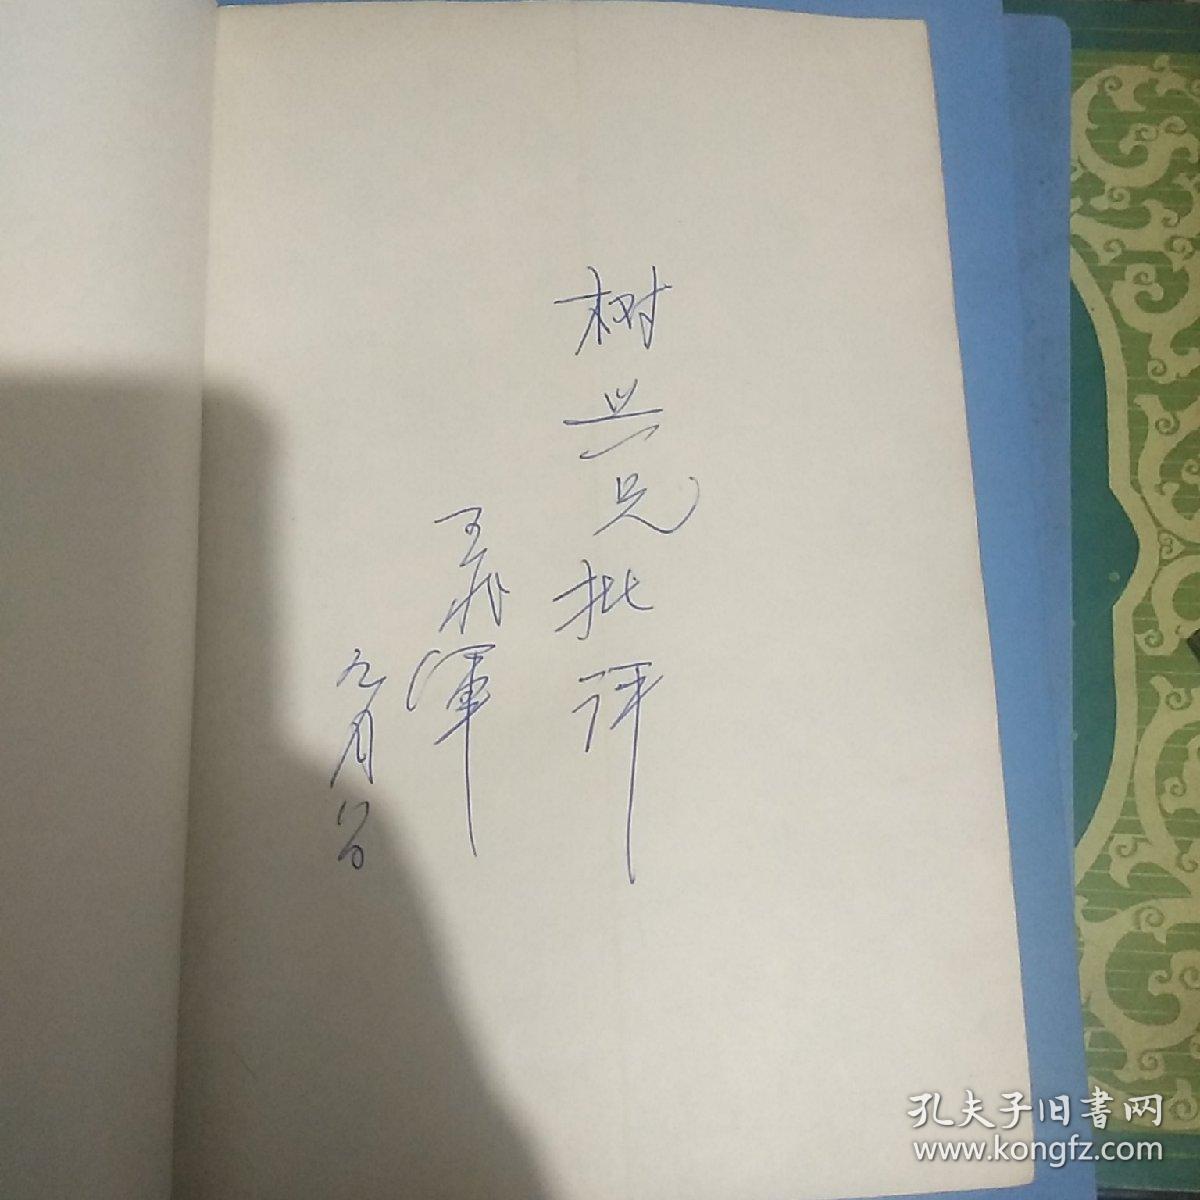 树兴兄批评
渾
九月八日
孔夫子旧書网
www.kongfz.com